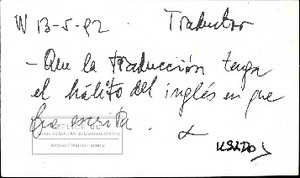 W 13-5-92 Traductor
- Que la traducción tenga
el hálito del inglés en que
fue escrita.
USADO